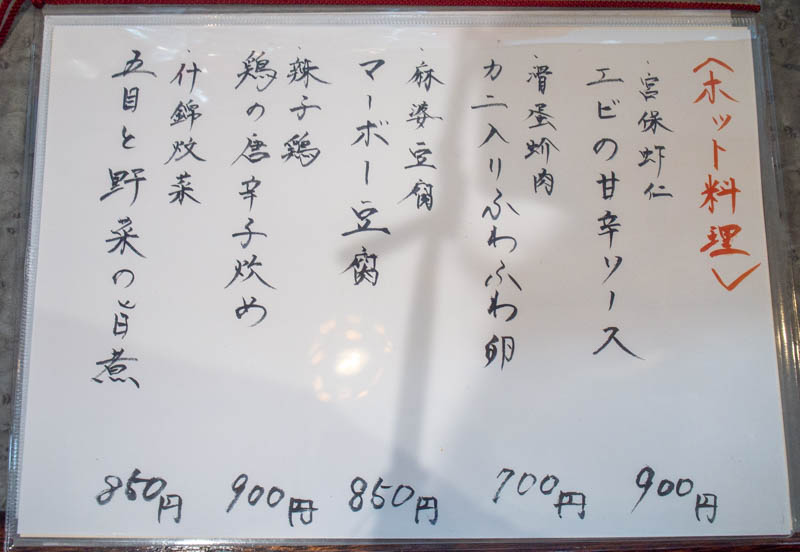 〈ホット料理〉
宮保虾仁
エビの甘辛ソース
900円
滑蛋蚧肉
カニ入りふわふわ卵
700円
麻婆豆腐
マーボー豆腐
850円
辣子鶏
鶏の唐辛子炒め
900円
什錦炆菜
五目と野菜の旨煮
850円